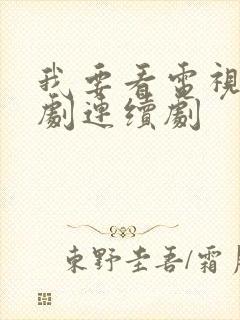 我要看電視
劇連續劇
東野圭吾/霜月